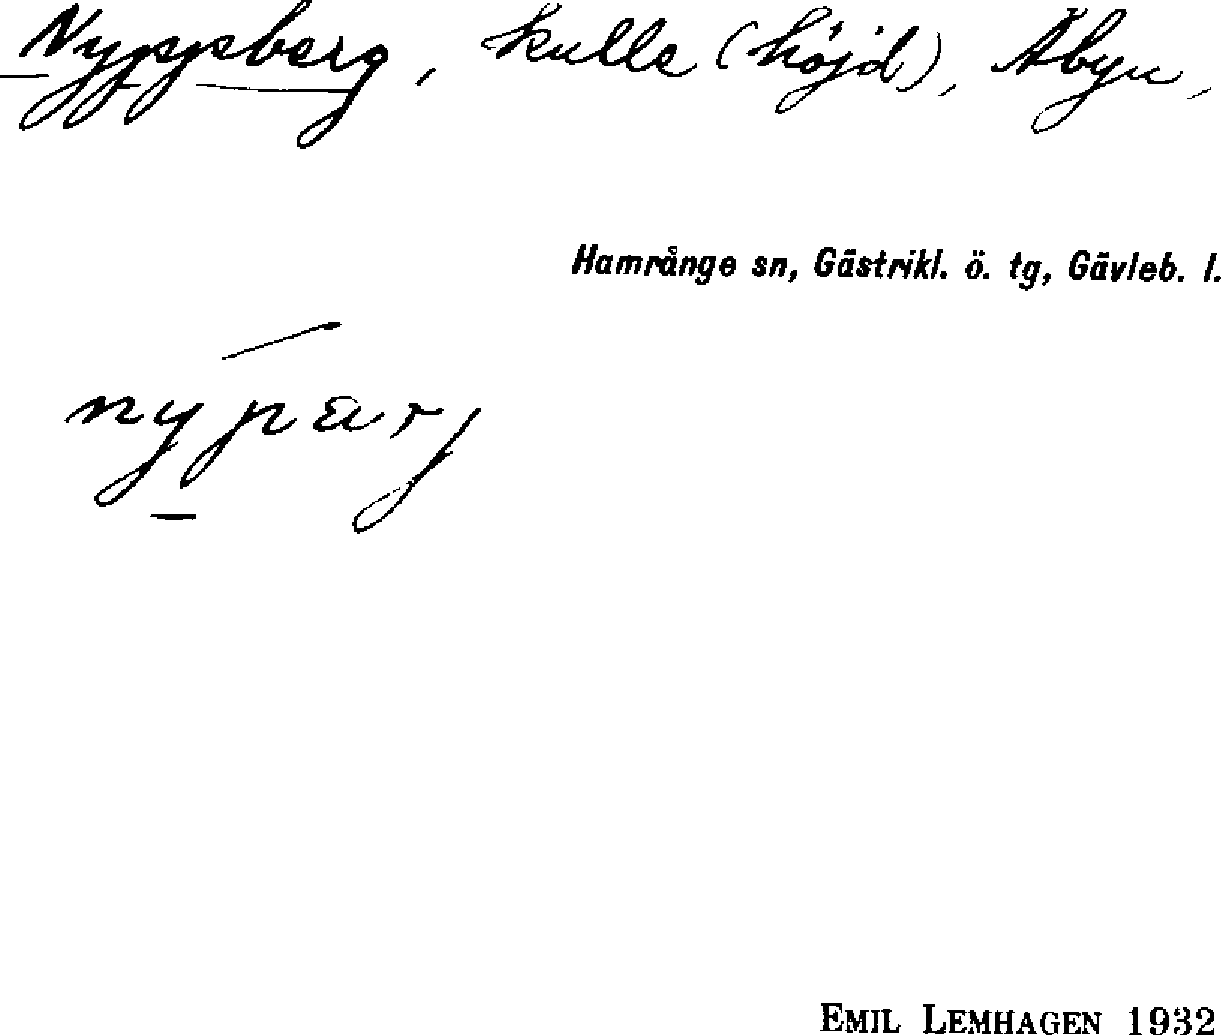 Nyppsberg, kulle (höjd), Åbyn,
Hamrånge sn, Gästrikl. ö. tg, Gävleb. l.
nypärj
EMIL LEMHAGEN 1932